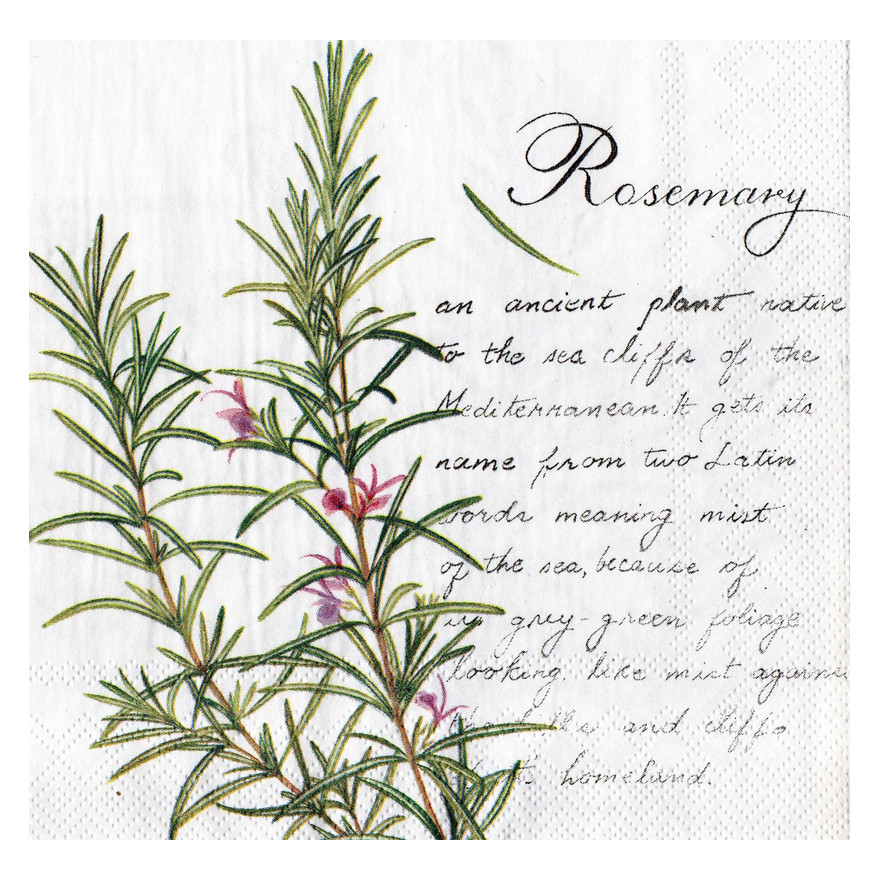 Rosemary
an ancient plant native
to the sea cliffs of the
Mediterranean. It gets its
name from two Latin
words meaning mist
of the sea, because of
its grey-green foliage
looking like mist against
the hills and cliffs
of it's homeland.